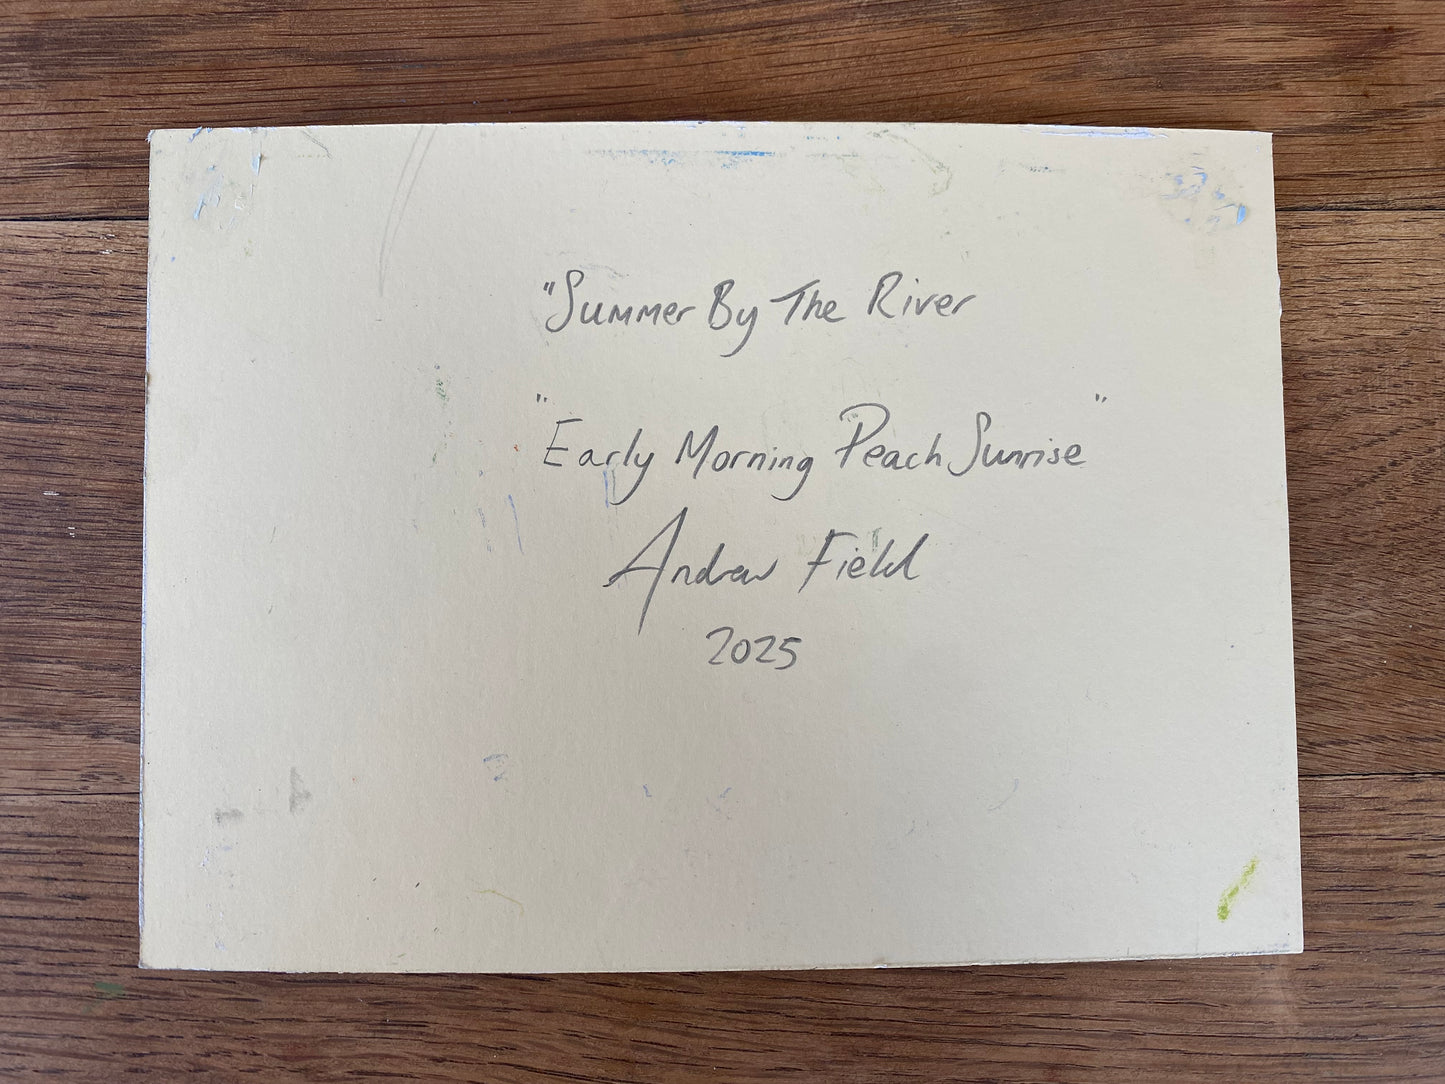 "Summer By The River
"Early Morning Peach Sunrise"
Andrew Field
2025